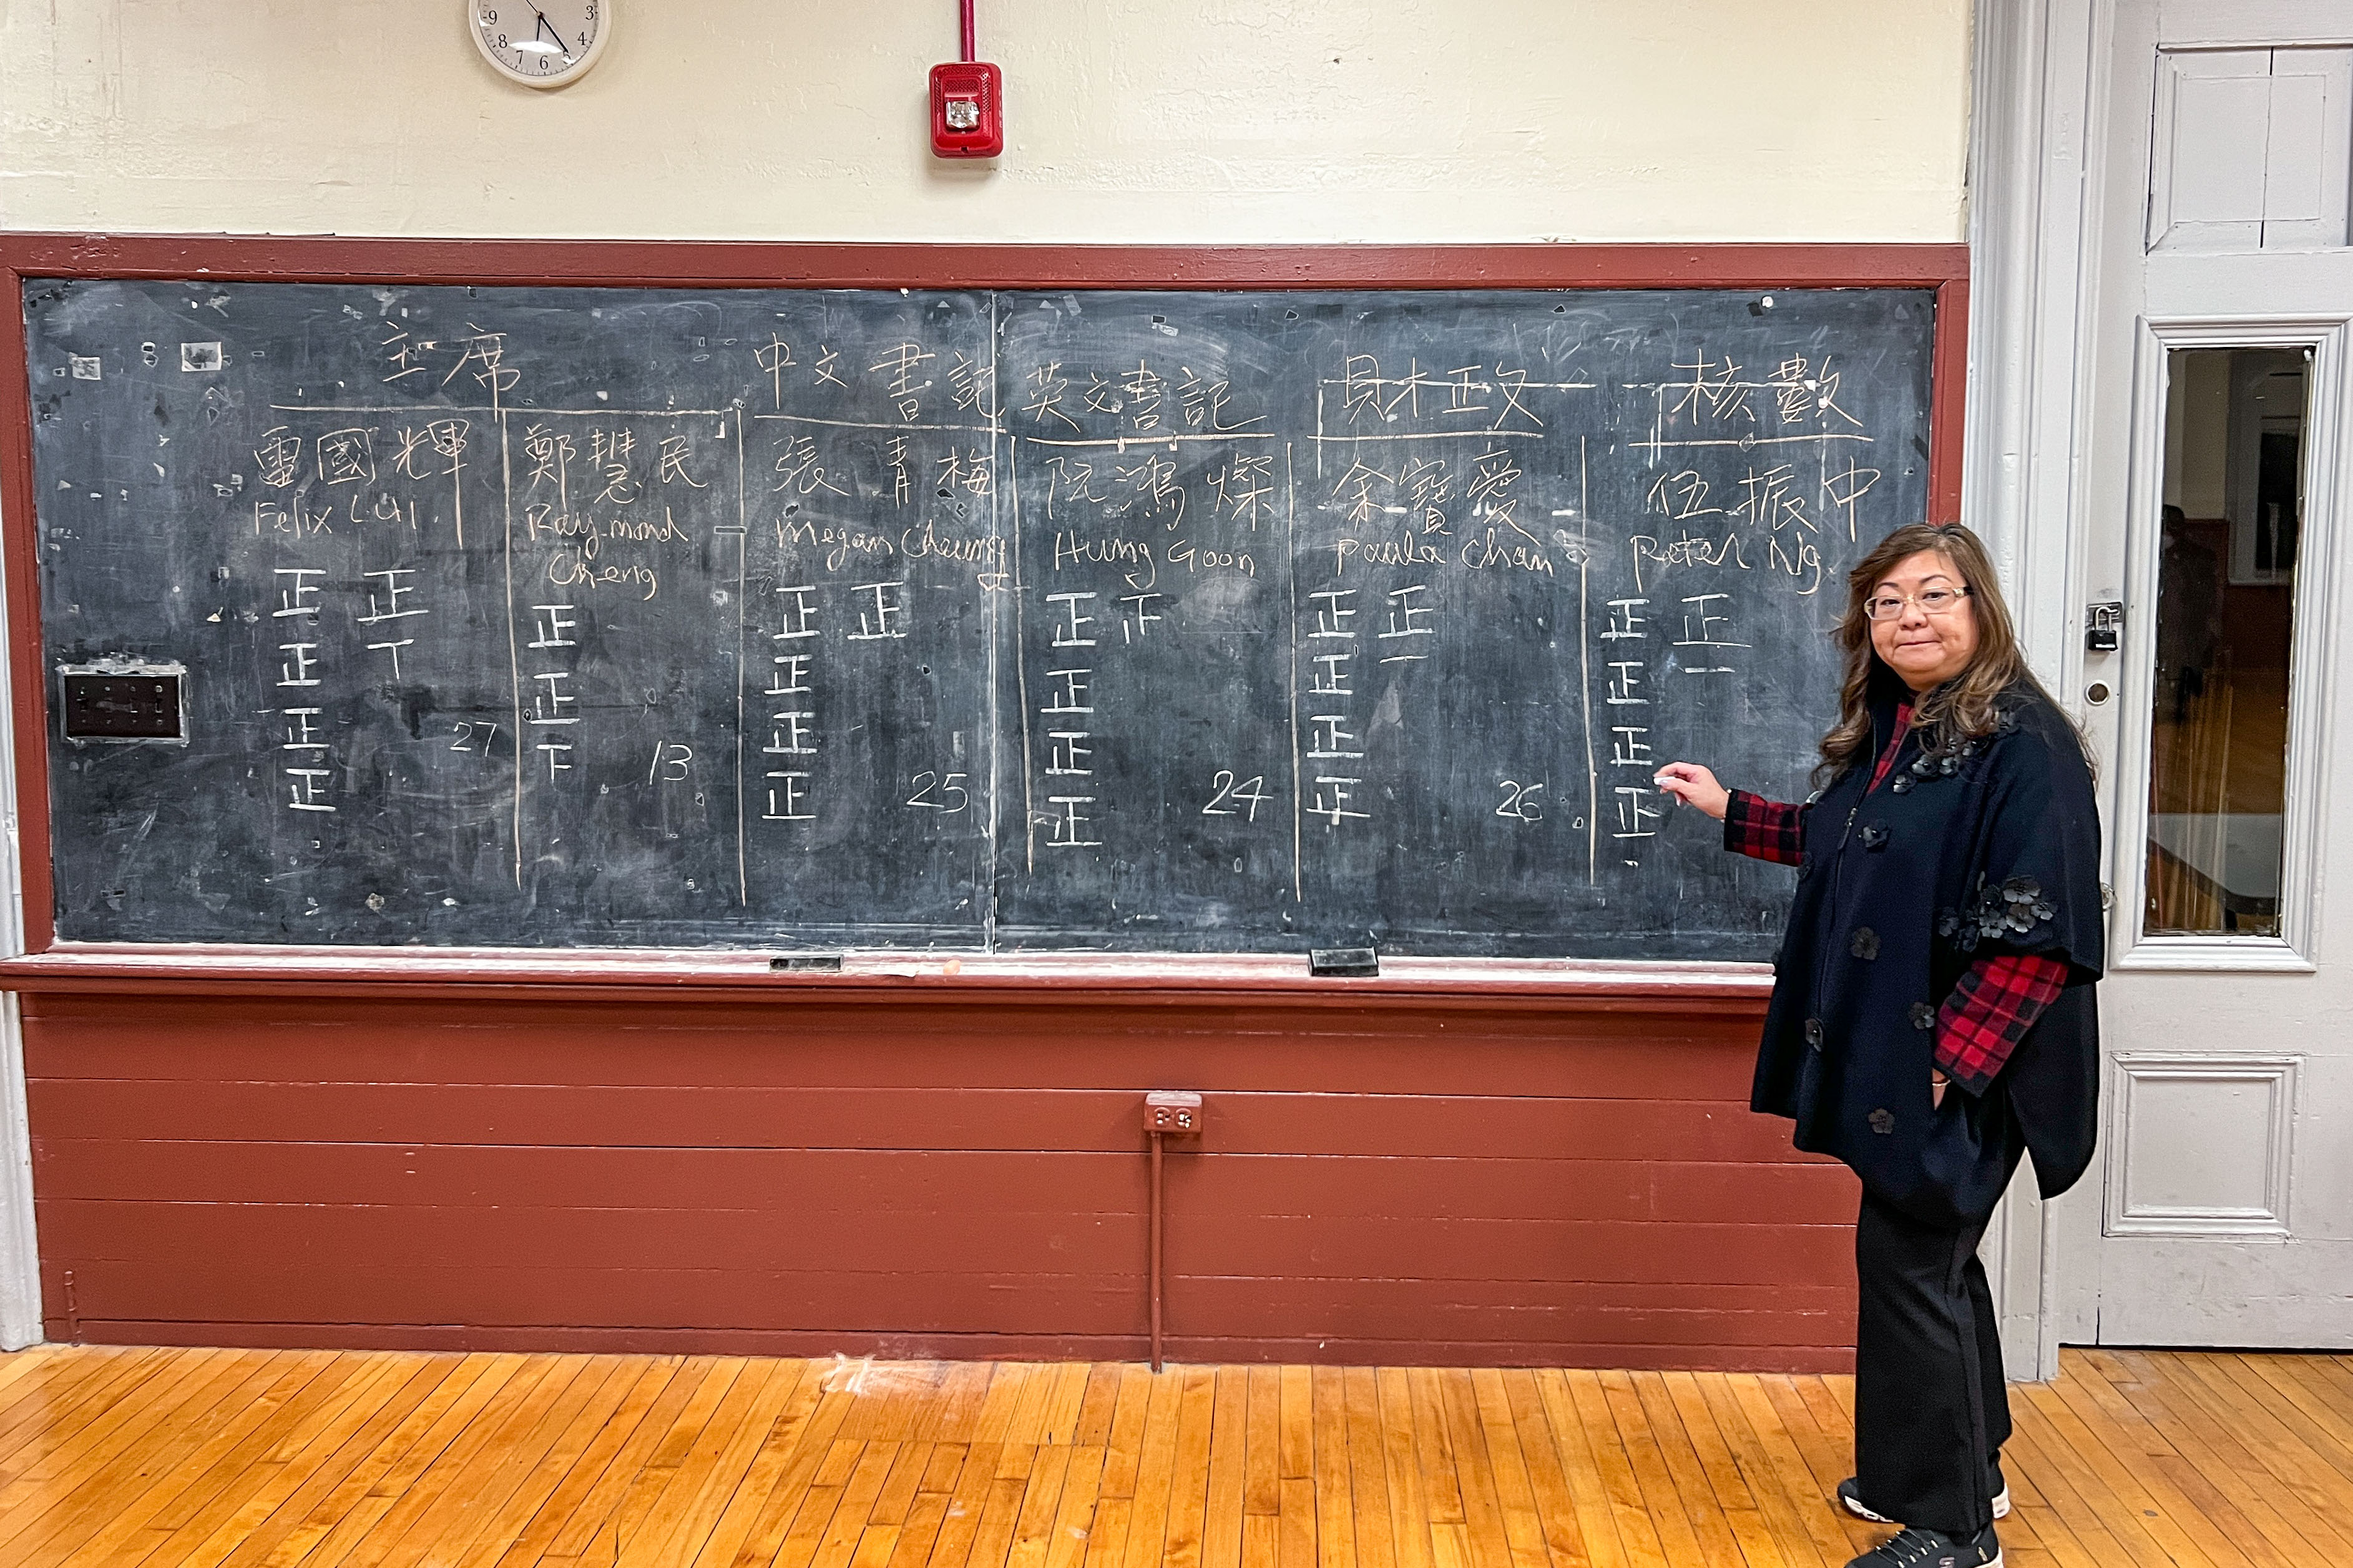 9 3
8 4
7 6
主席
雷國輝
Felix Lui.
正 正
正 丅
正
正
27
鄭慧民
Raymond
Cheng
正
正
下
13
中文書記
張青梅
Megan Cheung
正 正
正
正
正
25
英文書記
阮鴻燦
Hung Goon
正
正
正
正
24
財政
余寶愛
Paula Chan
正 正
正 一
正
正
26
核數
伍振中
Peter Ng.
正 正
正 一
正
正